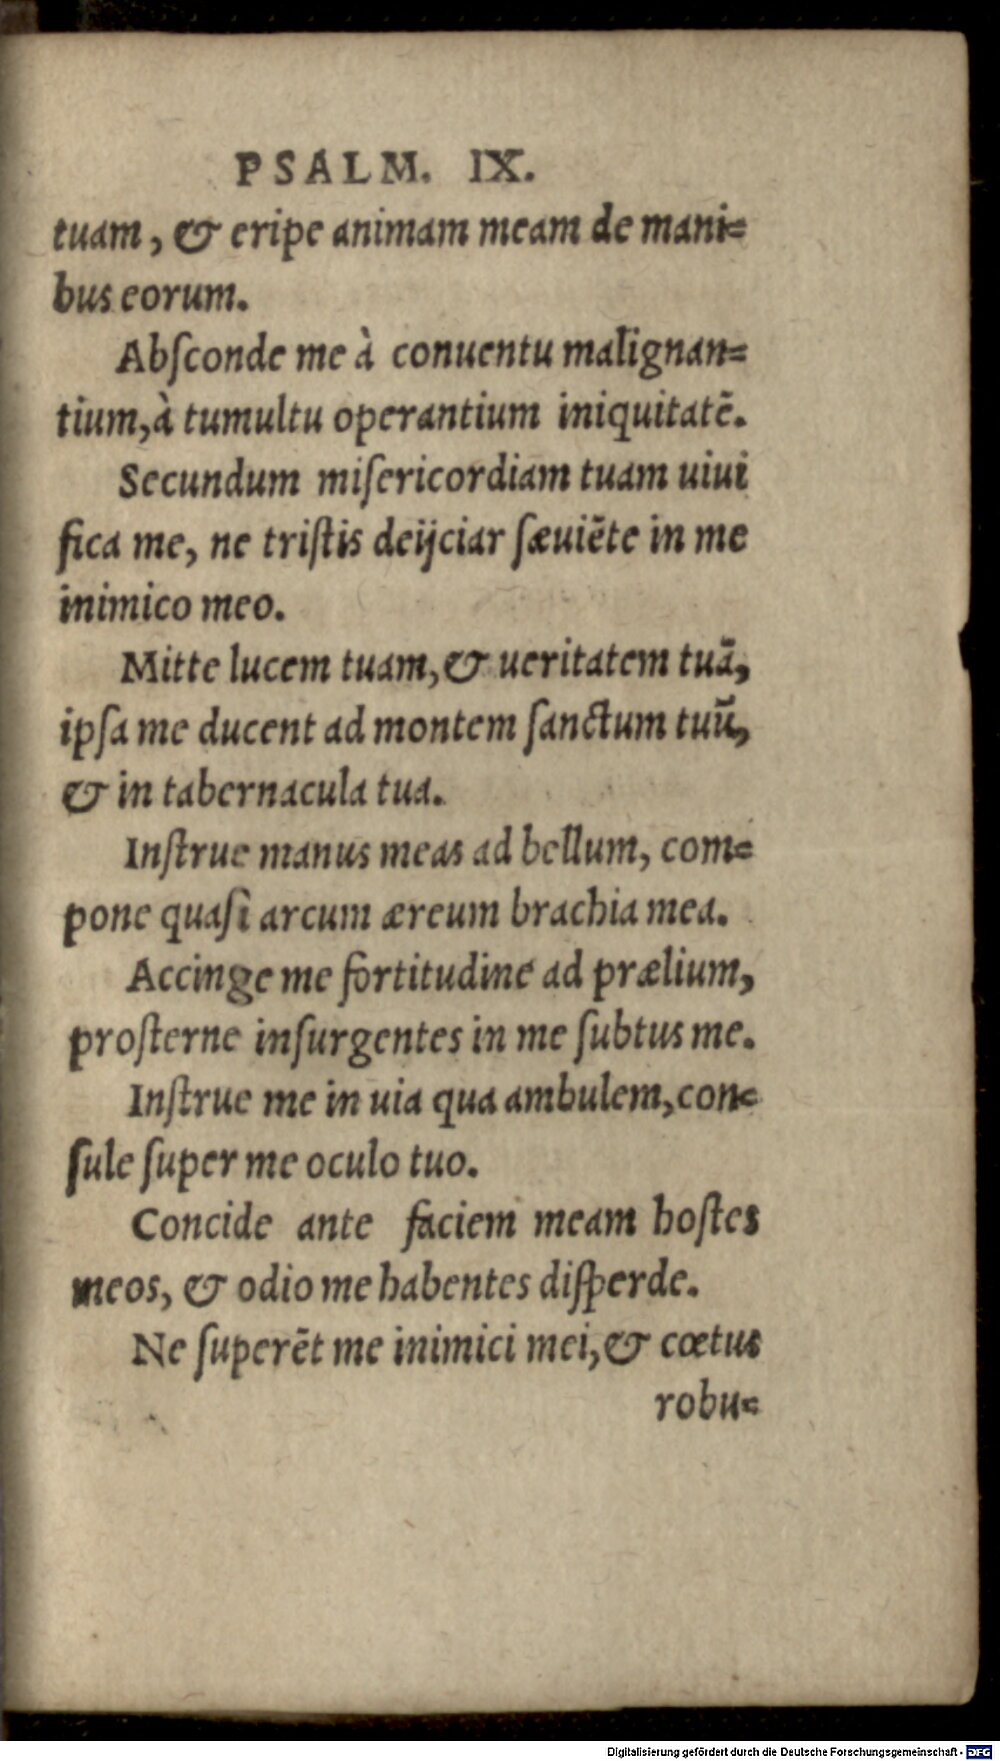 PSALM. IX.
tuam, & eripe animam meam de mani=
bus eorum.
Abſconde me à conuentu malignan=
tium, à tumultu operantium iniquitatē.
Secundum miſericordiam tuam uiui
fica me, ne triſtis deijciar ſæuiēte in me
inimico meo.
Mitte lucem tuam, & ueritatem tuā,
ipſa me ducent ad montem ſanctum tuū,
& in tabernacula tua.
Inſtrue manus meas ad bellum, com=
pone quaſi arcum æreum brachia mea.
Accinge me fortitudine ad prælium,
proſterne inſurgentes in me ſubtus me.
Inſtrue me in uia qua ambulem, con=
ſule ſuper me oculo tuo.
Concide ante faciem meam hoſtes
meos, & odio me habentes diſperde.
Ne ſuperēt me inimici mei, & cœtus
robu=
Digitalisierung gefördert durch die Deutsche Forschungsgemeinschaft - DFG